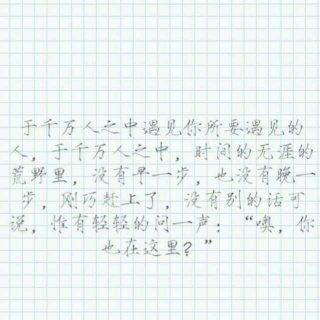 于千万人之中遇见你所要遇见的
人，于千万人之中，时间的无涯的
荒野里，没有早一步，也没有晚一
步，刚巧赶上了，没有别的话可
说，惟有轻轻的问一声：“噢，你
也在这里？”